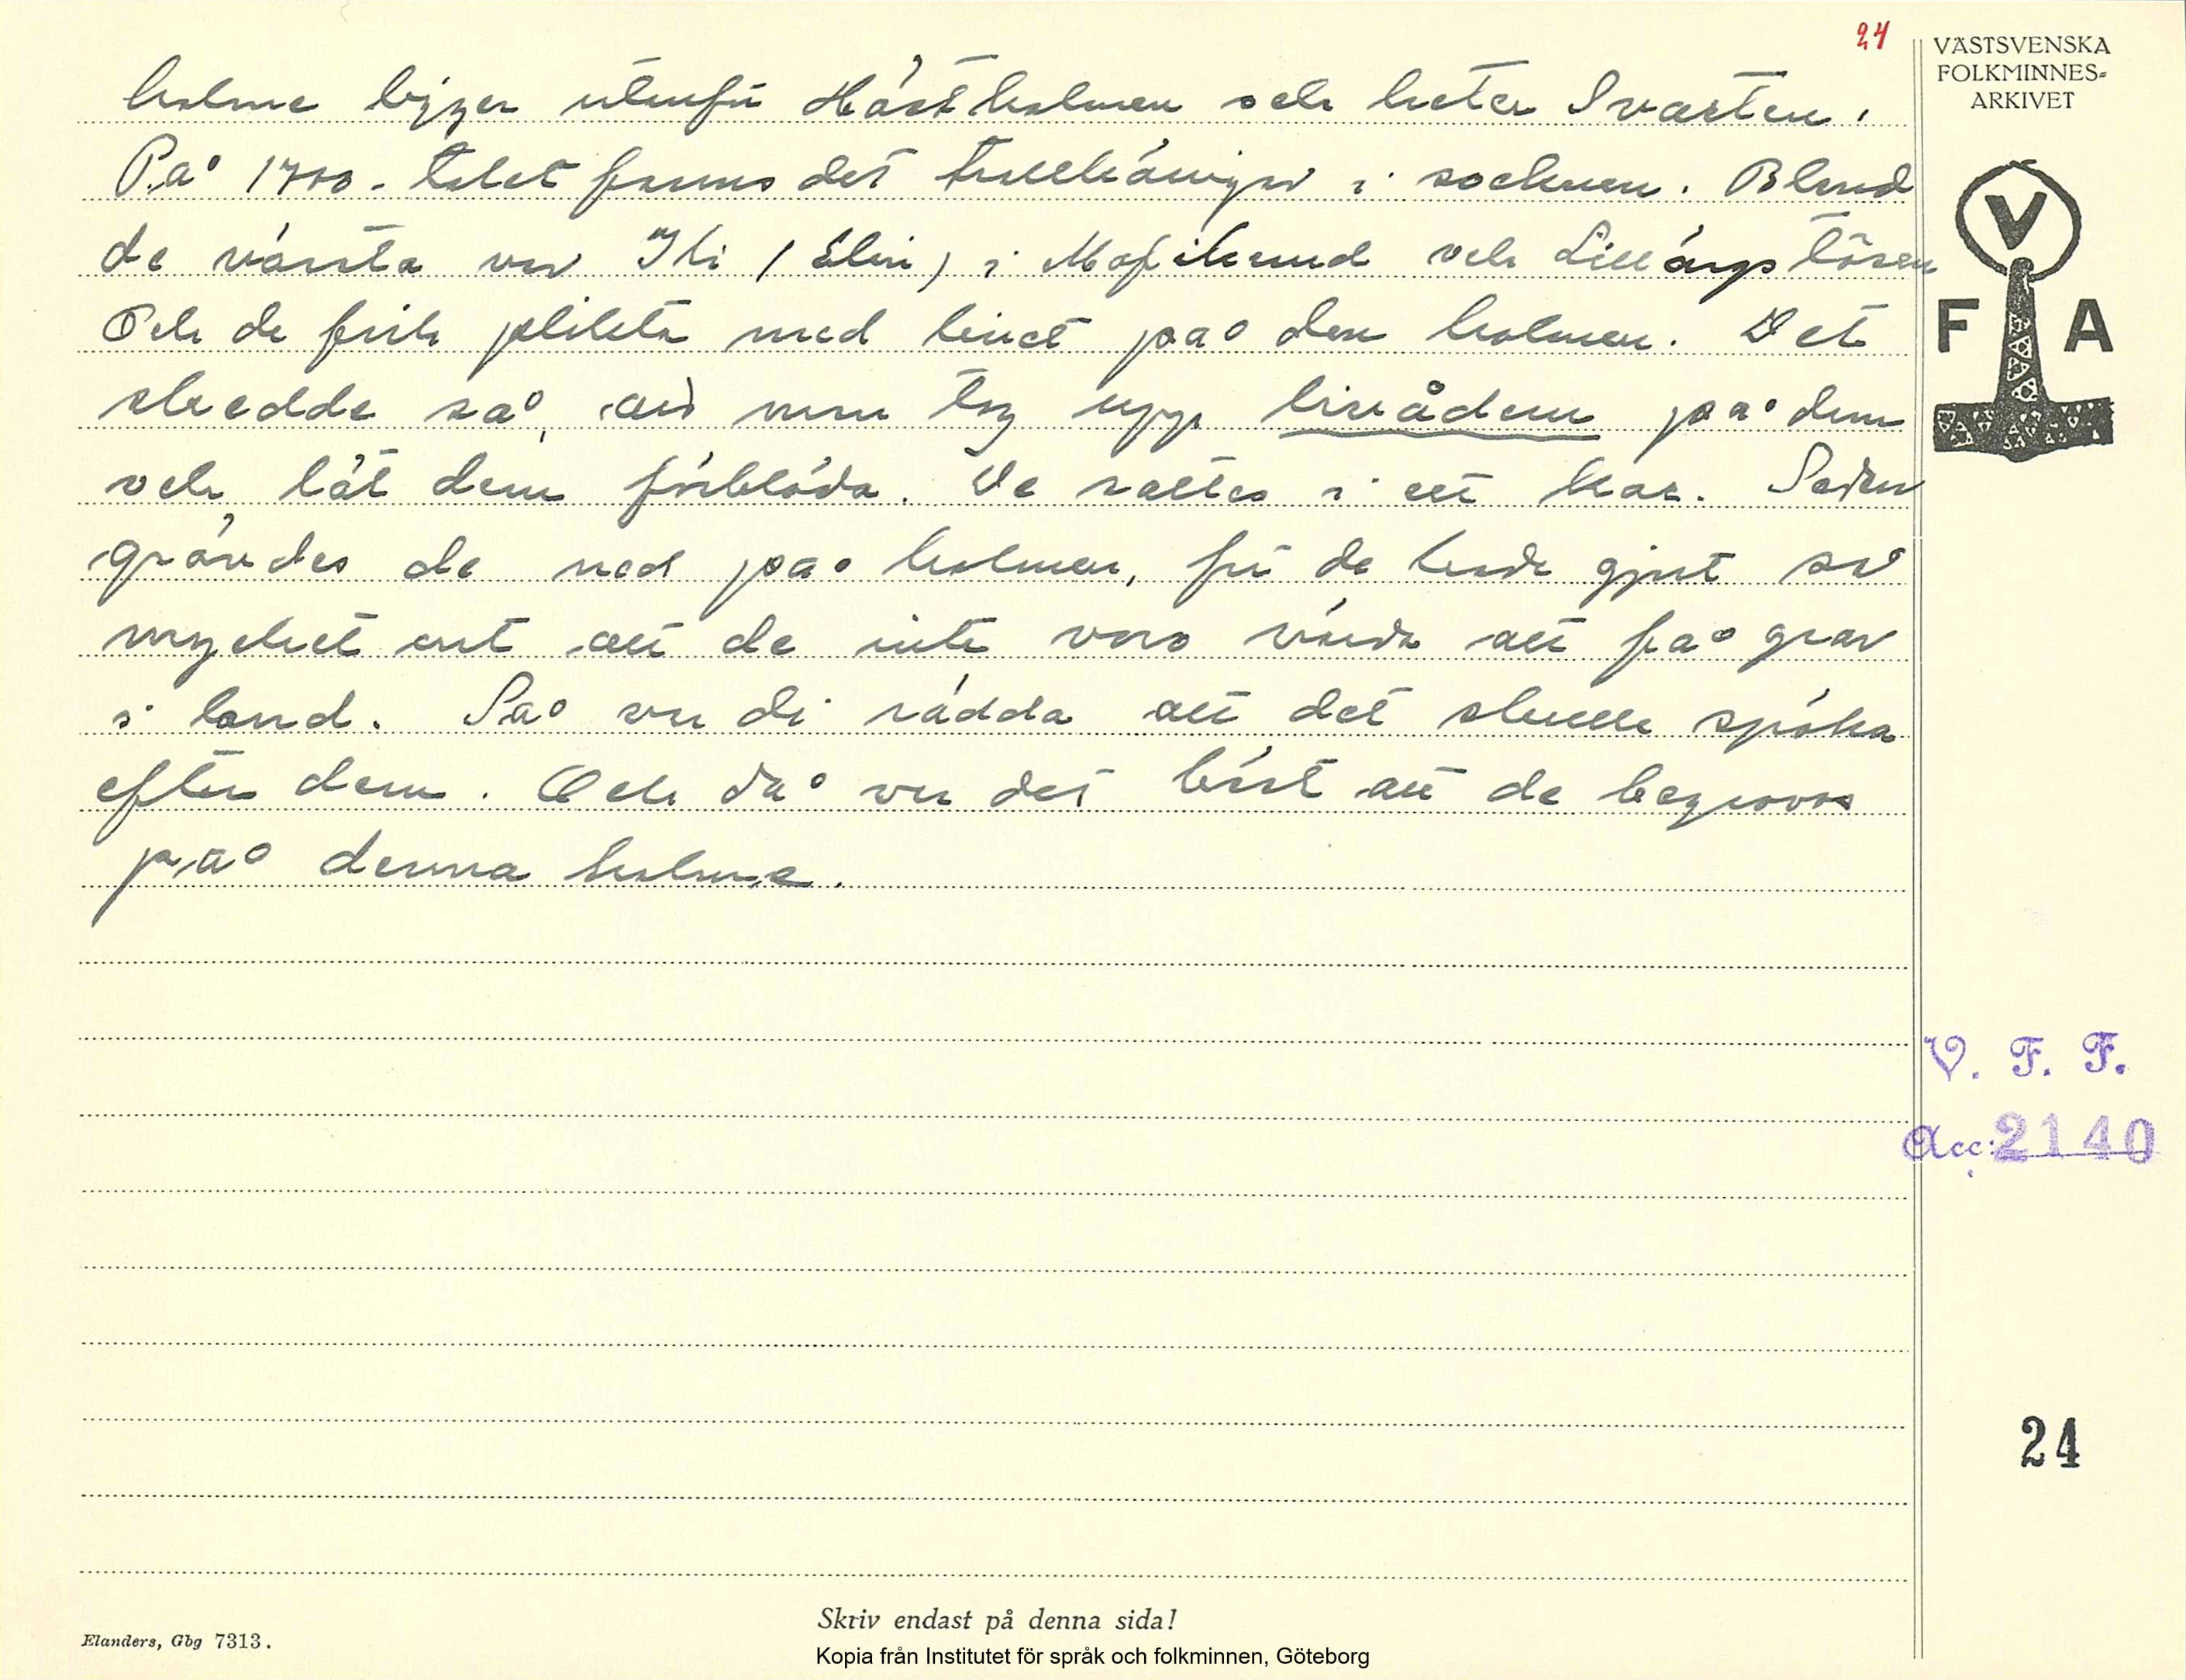 24
holme ligger utenför Hästholmen och heter Svarten.
På 1700-talet fanns det trollkäringar i socknen. Bland
de värsta var Ili (Elin) i och Lillängs tösen
Och de fick plikta med livet på den holmen. Det
skedde så, att man tog upp livådern på dem
och lät dem förblöda. De sattes i ett kar. Sedan
grävdes de ned på holmen, för de hade gjort så
mycket ont att de inte voro värda att få grav
i land. Så var di rädda att det skulle spöka
efter dem. Och då var det bäst att de begrovos
på denna holme.
VÄSTSVENSKA
FOLKMINNES-
ARKIVET
V
F A
V. F. F.
Acc: 2140
24
Skriv endast på denna sida!
Elanders, Gbg 7313.
Kopia från Institutet för språk och folkminnen, Göteborg